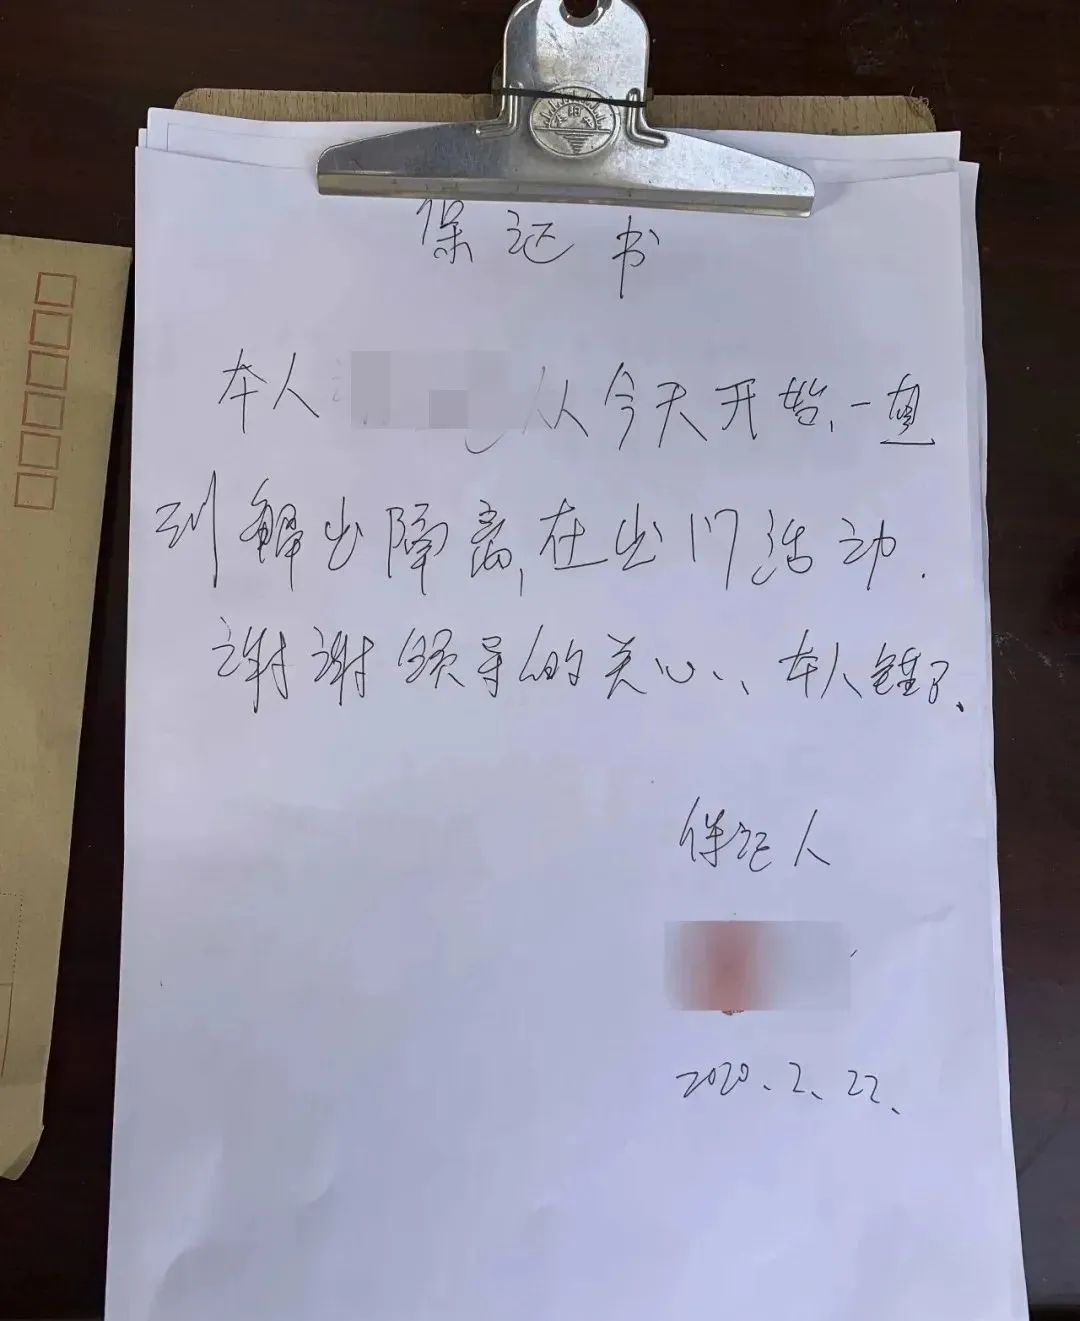 保证书
本人 从今天开始,一直
到解出隔离,在出门活动.
谢谢领导的关心、、本人错了、
保证人
2020、2、22、